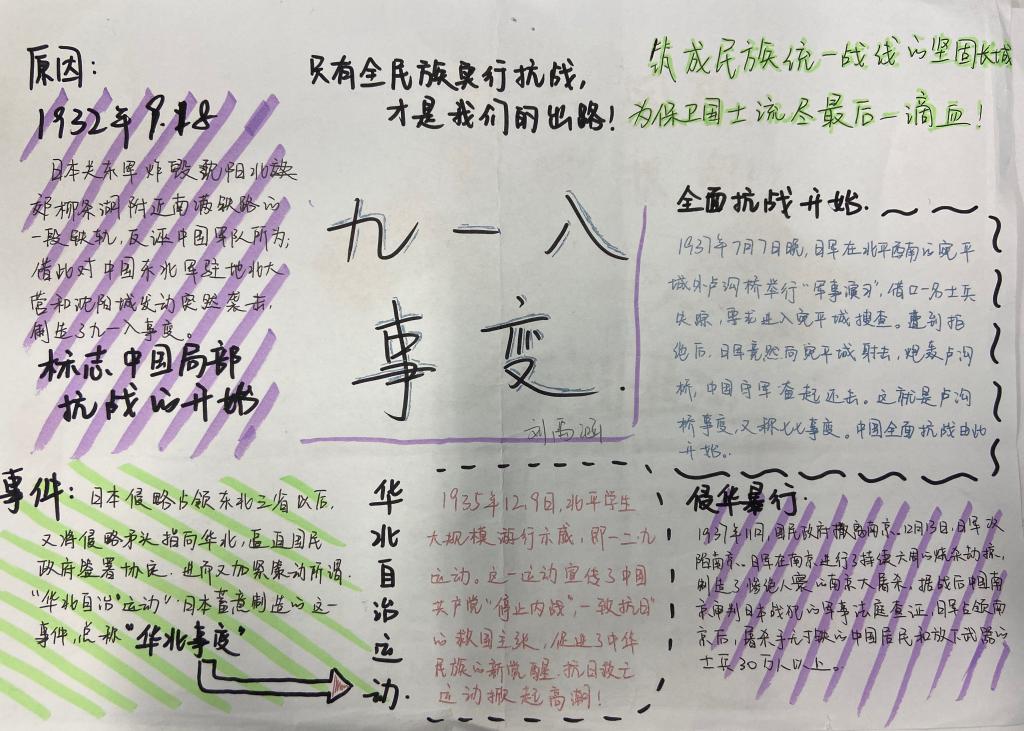 原因:
1932年9.18
日本关东军炸毁沈阳北放
郊柳条湖附近南满铁路的
一段铁轨,反诬中国军队所为;
借此对中国东北军驻地北大
营和沈阳城发动突然袭击,
制造了九一八事变。
标志中国局部
抗战的开始
只有全民族实行抗战,
才是我们的出路!
筑成民族统一战线的坚固长城
为保卫国土流尽最后一滴血!
九一八
事变.
全面抗战开始.
1937年7月7日晚,日军在北平西南的宛平
城外卢沟桥举行"军事演习",借口一名士兵
失踪,要求进入宛平城搜查。遭到拒
绝后,日军竟然向宛平城射击,炮轰卢沟
桥,中国守军奋起还击。这就是卢沟
桥事变,又称七七事变。中国全面抗战由此
开始。
事件:日本侵略占领东北三省以后,
又将侵略矛头指向华北,逼迫国民
政府签署协定,进而又加紧策动所谓
"华北自治"运动".日本蓄意制造的这一
事件,总称"华北事变"
华北自治运动.
1935年12.9日,北平学生
大规模游行示威,即一二九
运动。这一运动宣传了中国
共产党"停止内战","一致抗日"
的救国主张,促进了中华
民族的新觉醒.抗日救亡
运动掀起高潮!
侵华暴行.
1937年11月,国民政府撤离南京.12月13日,日军攻
陷南京、日军在南京进行了持续六周的烧杀劫掠,
制造了惨绝人寰的南京大屠杀。据战后中国南
京审判日本战犯的军事法庭查证,日军占领南
京后,屠杀手无寸铁的中国居民和放下武器的
士兵30万人以上。